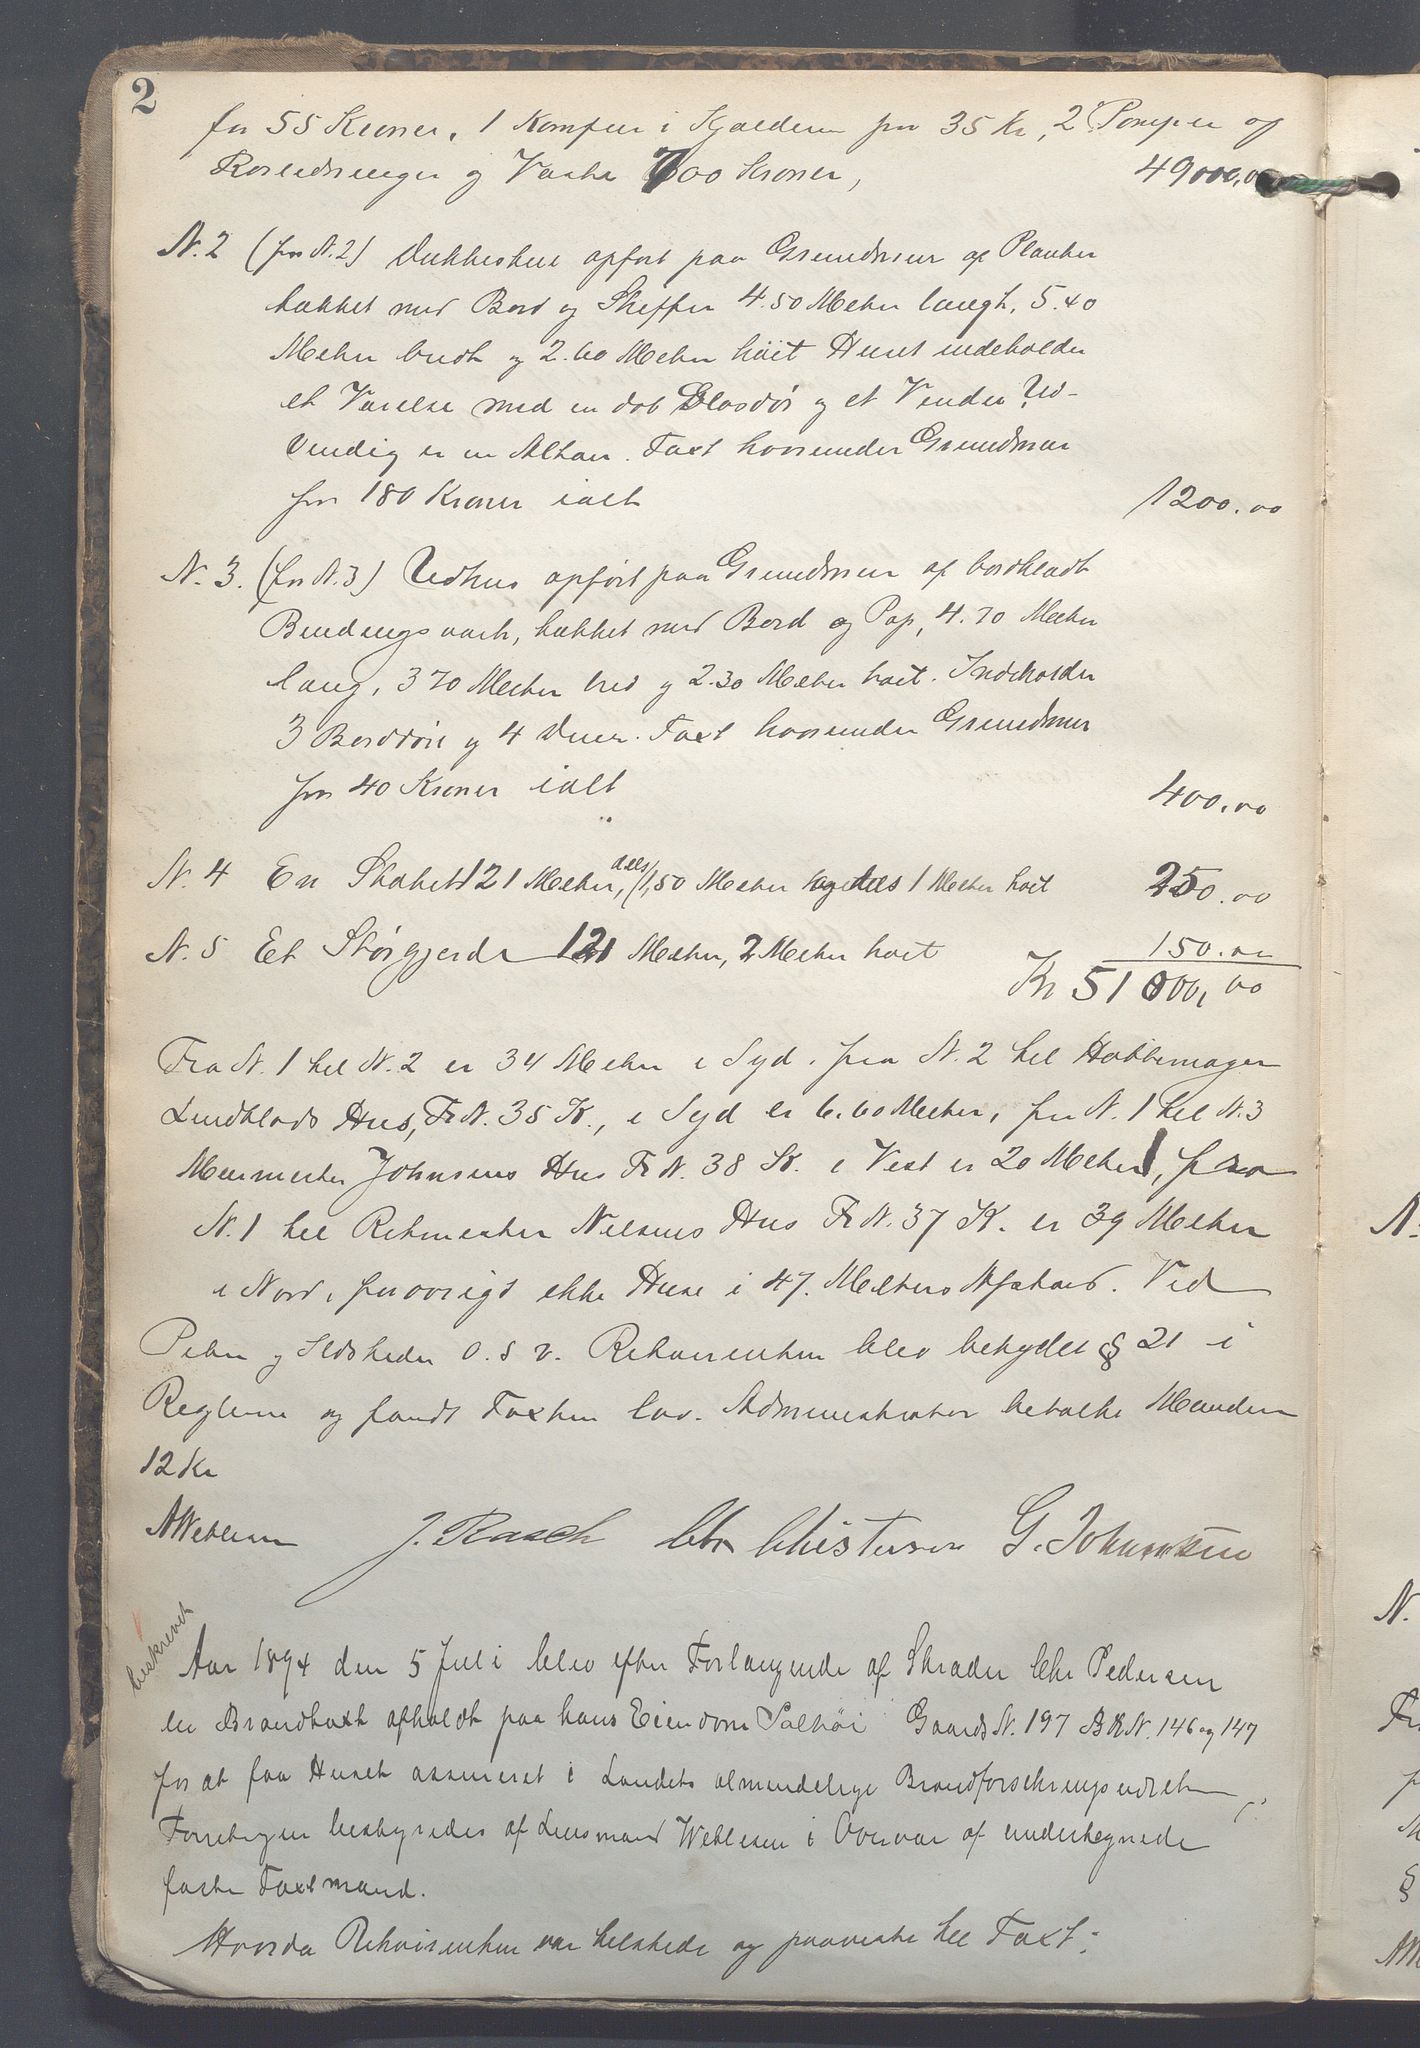 2
for 55 Kroner, 1 Komfur i Kjælderen for 35 Kr, 2 Pomper og
Rørledninger og Vaske 700 Kroner, 49000,00
N. 2 (før N. 2) Dukkestue opført paa Grundmur af Planker
tækket med Bord og Skiffer 4.50 Meter langt, 5.40
Meter bredt og 2.60 Meter høit Huset indeholder
et Værelse med en dob Glasdør og et Vendu Ud-
vendig er en Altan. Taxt hvorunder Grundmur
for 180 Kroner ialt 1200.00
N. 3. (før N. 3) Udhus opført paa Grundmur af bordklædt
Bindingsværk, tækket med Bord og Pap, 4.70 Meter
lang, 3 70 Meter bred og 2.30 Meter høit. Indeholder
3 Borddøre og 4 Duer. Taxt hvorunder Grundmur
for 40 Kroner ialt 400.00
N. 4 En Stakit 121 Meter, dels 1,50 Meter og dels 1 Meter høit 250.00
N. 5 Et Skigjerde 121 Meter, 2 Meter høit 150.00
Kr 51000,00
Fra N. 1 til N. 2 er 34 Meter i Syd, fra N. 2 til
Lindblads Hus, Fr N. 35 K., i Syd er 6.60 Meter, fra N. 1 til N. 3
Murmester Johnsens Hus Fr N. 38 K. i Vest er 20 Meter, fra
N. 1 til Nilsens Hus Fr N. 37 K. er 39 Meter
i Nord, forøvrigt ikke Huse i 47. Meters Afstand. Ved
Piber og Ildsteder o. s v. Rekvirenten blev betydet § 21 i
Reglerne og fandt Taxten lav. Administrator betalte Manden
12 Kr
AWetlesen J. Rasch Chr Christensen G. Johannsen
beskrevet
Aar 1894 den 5 Juli blev efter Forlangende af Skræder Chr Pedersen
en Brandtaxt afholdt paa hans Eiendom Solhøi Gaards N. 197 BR N. 146 og 147
for at faa Huset assureret i Landets almindelige Brandforsikringsindretn
Forretningen bestyredes af Lensmand Wetlesen i Overvær af undertegnede
faste Taxtmænd.
Hvorda Rekvirenten var tilstede og paaviste til Taxt: